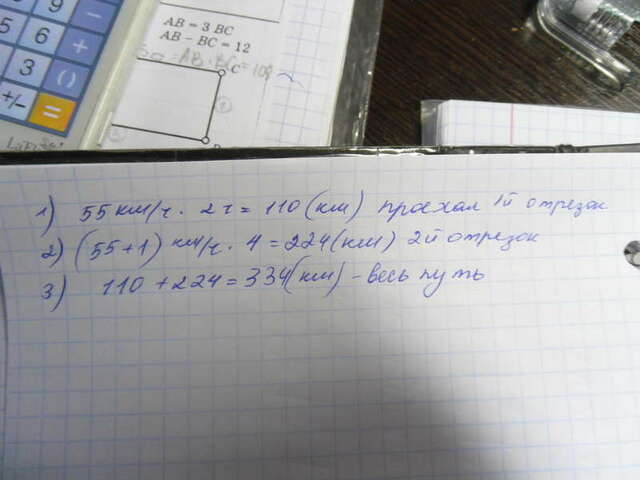 9
5 6 +
3 ()
+/- =
AB = 3 BC
AB – BC = 12
C = 108
1) 55 км/ч · 2 ч = 110 (км) проехал 1й отрезок
2) (55+1) км/ч · 4 = 224 (км) 2й отрезок
3) 110 + 224 = 334 (км) – весь путь